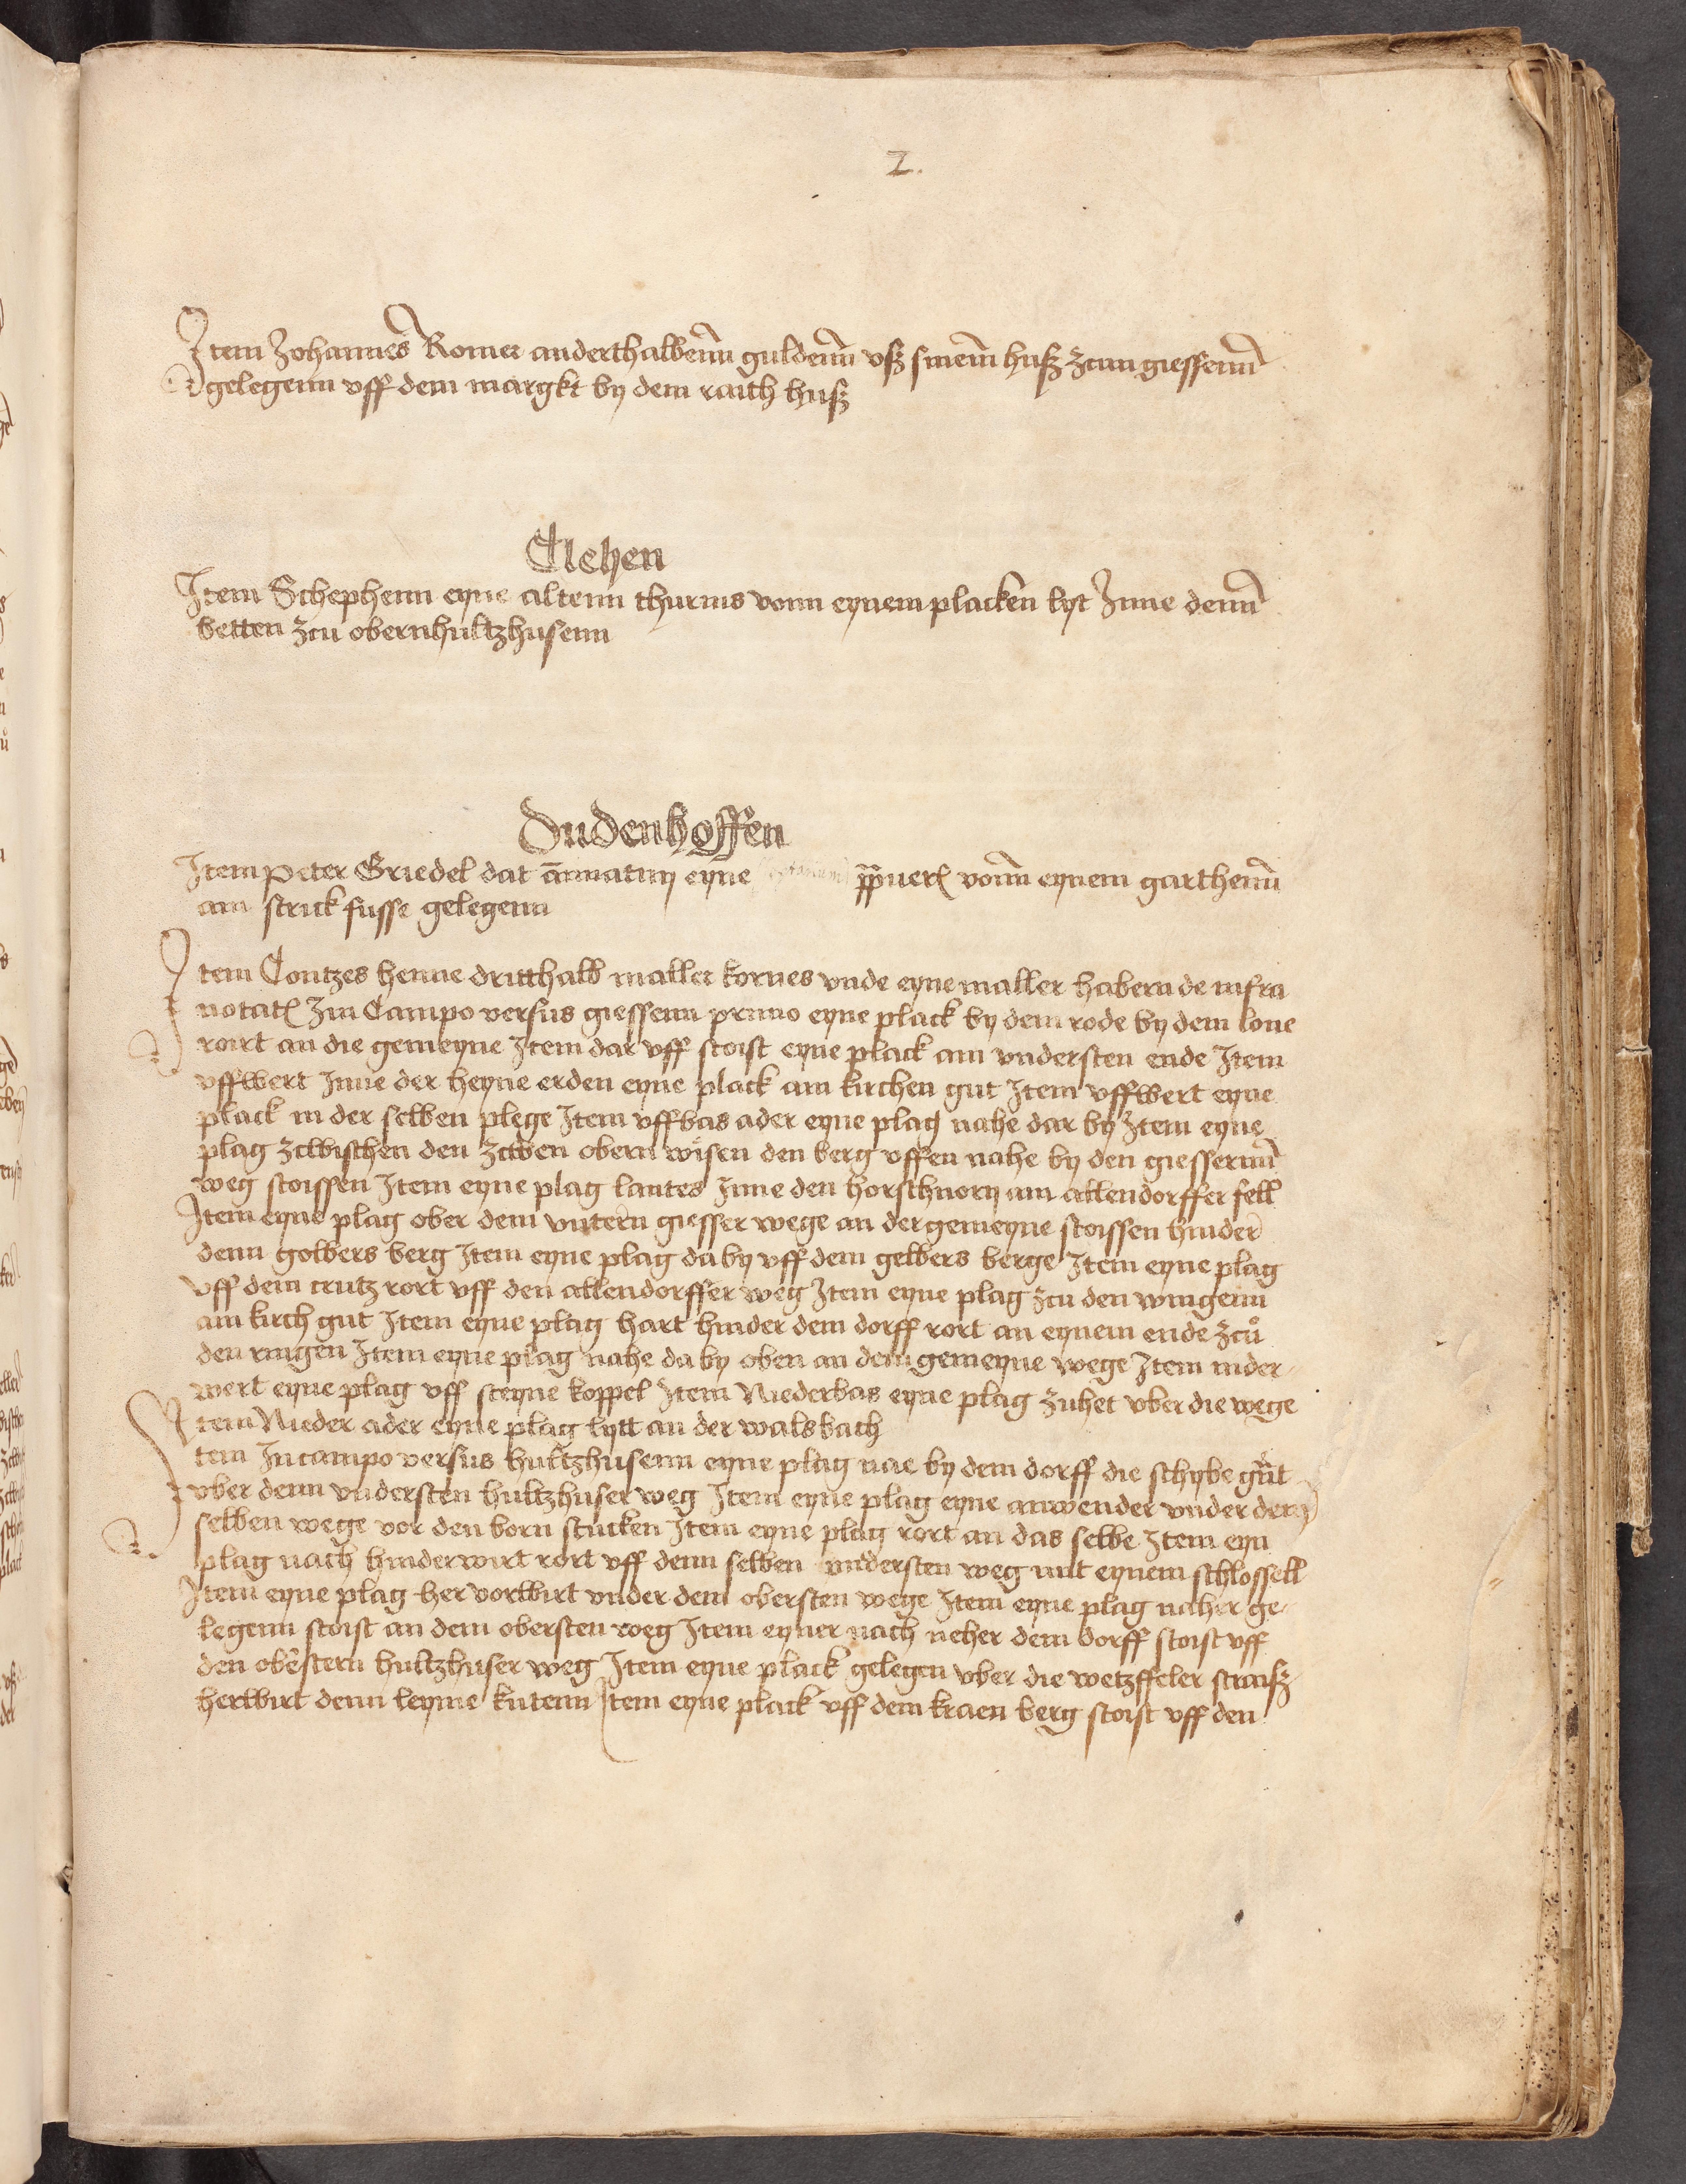 2.
Item Johannes Romer anderthalbenn guldenn vsz sinem husz zcun giessenn
gelegenn vff dem margkt by dem raith husz
Clehen
Item Schephenn eyne altenn thurnis vonn eynem placken lyt Jnne denn
betten zcu obernhultzhusenn
Dudenhoffen
Item Peter Griedel dat annuatim eyne vonn eynem garthenn
am strick fusse gelegenn
Item Contzes henne dritthalb maller kornes vnde eyne maller habern de infra
notat Jn Campo versus giessenn primo eyne plack by dem rode by dem lone
rort an die gemeyne Item dar vff stoist eyne plack am vndersten ende Item
vffwert Jnne der heyne erden eyne plack am kirchen gut Item vffwert eyne
plack in der selben plege Item vffbas ader eyne plag nahe dar by Item eyne
plag zcwischen den zcwen obern wisen den berg vffen nahe by den giessernn
weg stoissen Item eyne plag lantes Jnne den am allendorffer fell
Item eyne plag ober dem vntern giesser wege an der gemeyne stoissen hinder
denn golbers berg Item eyne plag da by vff dem gelbers berge Item eyne plag
vff dem crutz rort vff den allendorffer weg Item eyne plag zcu den wingenn
am kirch gut Item eyne plag hart hinder dem dorff rort an eynem ende zcu
den ringen Item eyne plag nahe da by oben an dem gemeyne wege Item nider
wert eyne plag vff steyne koppel Item Niederbas eyne plag zuhet vber die wege
Item Nieder ader eyne plag lytt an der walsbach
Item In campo versus hultzhusenn eyne plag nae by dem dorff die schybe gut
vber denn vndersten hultzhuser weg Item eyne plag eyne anwender vnder dem
selben wege vor den born stucken Item eyne plag rort an das selbe Item eyn
plag nach hinderwirt rort vff denn selben vndersten weg mit eynem schlossell
Item eyne plag her vorwirt vnder dem obersten wege Item eyne plag naher ge
legenn stoist an dem obersten weg Item eyner nach neher dem dorff stoist vff
den obestern hultzhuser weg Item eyne plack gelegen vber die wetzffeler straisz
herwirt denn leyme kutenn Item eyne plack vff dem kraen berg stoist vff den